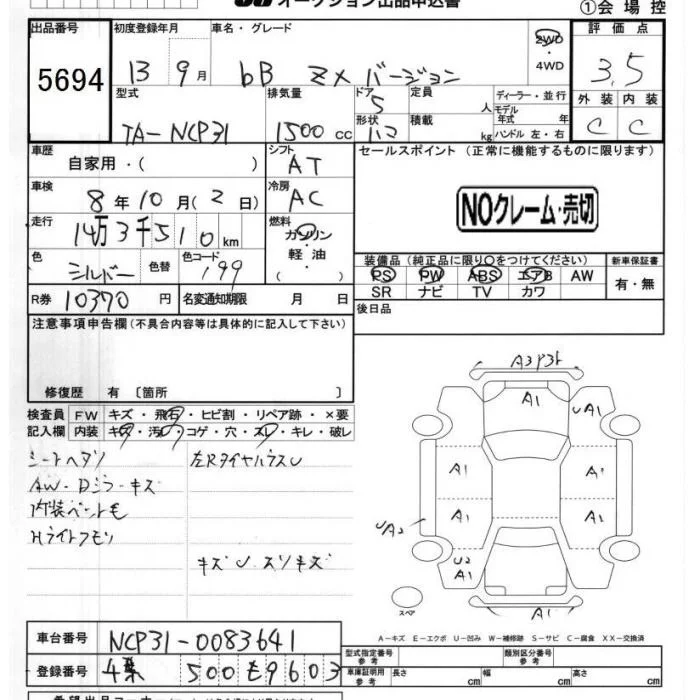 オークション出品申込書
①会場控
出品番号
5694
初度登録年月
13 9月
車名・グレード
bB ZXバージョン
2WD
・4WD
評価点
3.5
外装 内装
C C
型式
TA-NCP31
排気量
1500 CC
ドア
5
形状
定員 人
積載 kg
ディーラー・並行
モデル年式 年
ハンドル 左・右
車歴
自家用・( )
シフト
AT
セールスポイント (正常に機能するものに限ります)
NOクレーム・売切
車検
8年10月(2日)
冷房
AC
走行
14万3千510km
燃料
ガソリン
軽油
( )
色
シルバー
色替
色コード
199
装備品(純正品に限り○をつけてください)
PS PW ABS エアB AW
SR ナビ TV カワ
新車保証書
有・無
R券 10370円
名変通知期限 月 日
後日品
注意事項申告欄(不具合内容等は具体的に記入して下さい)
修復歴 有 〔箇所 〕
検査員 FW キズ・飛石・ヒビ割・リペア跡・×要
記入欄 内装 キズ・汚れ・コゲ・穴・スレ・キレ・破レ
シートヘタリ
AW・Dミラーキズ
内装ペイントも
Hライトクモリ
キズU・スリキズ
A1
UA1
A1
A1
A1
A1
UA2
U2
A1
A1
スペア
A-キズ E-エクボ U-凹み W-補修跡 S-サビ C-腐食 XX-交換済
車台番号
NCP31-0083641
登録番号
500も9603
型式指定番号
参考
類別区分番号
参考
車庫証明用
参考
長さ cm 幅 cm 高さ cm